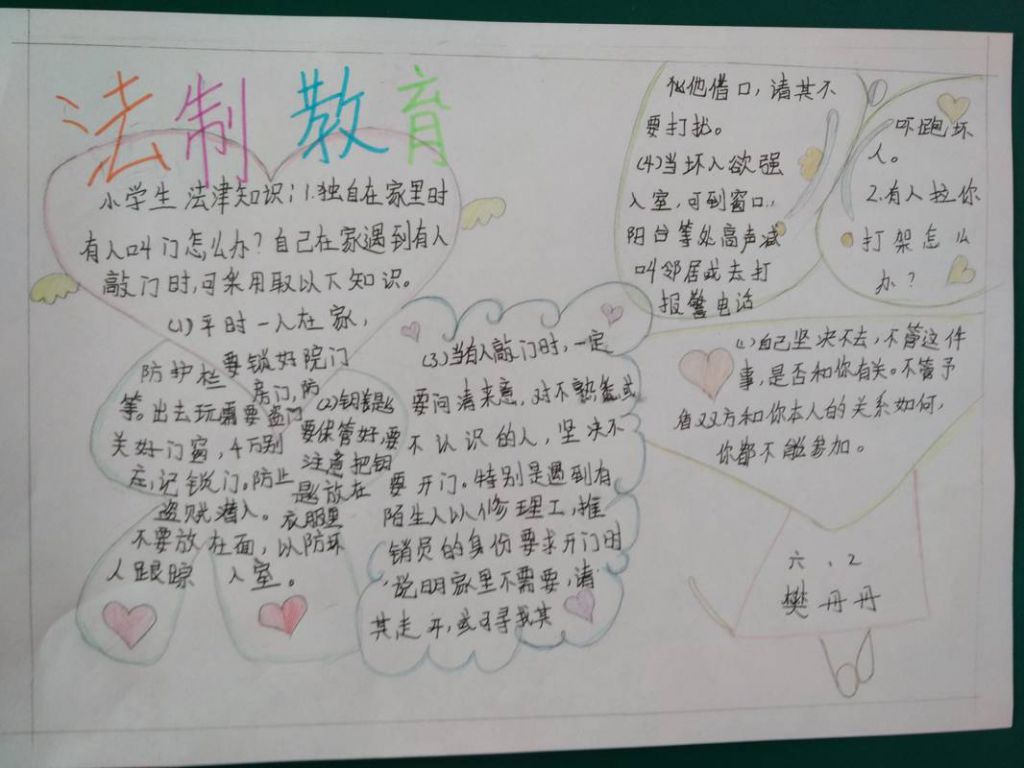 法制教育
小学生法津知识；1.独自在家里时
有人叫门怎么办？自己在家遇到有人
敲门时，可采用取以下知识。
(1)平时一人在家，
要锁好院门
防护栏
房门，防
等。出去玩需要盗门
关好门窗，千万别
忘记锁门。防止
盗贼潜入。
(2)钥匙
要保管好，要
注意把钥
匙放在
衣服里
不要放在面，以防坏
人跟踪入室。
(3)当有人敲门时，一定
要问清来意，对不熟悉或
不认识的人，坚决不
要开门。特别是遇到有
陌生人以修理工，推
销员的身份要求开门时
，说明家里不需要，请
其走开，或可寻找其
他借口，请其不
要打扰。
(4)当坏人欲强
入室，可到窗口，
阳台等处高声减
叫邻居或去打
报警电话
吓跑坏
人。
2.有人拉你
打架怎么
办？
(1)自己坚决不去，不管这件
事，是否和你有关。不管予
盾双方和你本人的关系如何，
你都不能参加。
六.2
樊丹丹